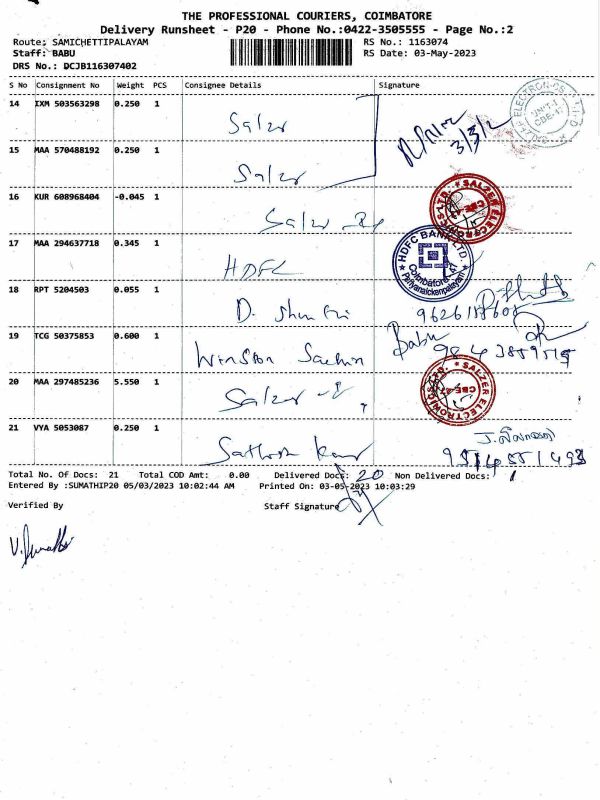 THE PROFESSIONAL COURIERS, COIMBATORE
Delivery Runsheet - P20 - Phone No.:0422-3505555 - Page No.:2
Route: SAMICHETTIPALAYAM RS No.: 1163074
Staff: BABU RS Date: 03-May-2023
DRS No.: DCJB116307402
S No Consignment No Weight PCS Consignee Details Signature
14 IXM 503563298 0.250 1 Salzer
15 MAA 570488192 0.250 1 Salzer
16 KUR 608968404 -0.045 1 Salzer
SALZER ELECTRONICS LTD.
17 MAA 294637718 0.345 1 HDFC
HDFC BANK LTD
Coimbatore-47
Periyanaickenpalayam
18 RPT 5204503 0.055 1 D.
19 TCG 50375853 0.600 1 Winston Sachin Babu
20 MAA 297485236 5.550 1 Salzer
SALZER ELECTRONICS LTD.
CBE-47
21 VYA 5053087 0.250 1 Sathosh Kumar
Total No. Of Docs: 21 Total COD Amt: 0.00 Delivered Docs: 20 Non Delivered Docs: 1
Entered By :SUMATHIP20 05/03/2023 10:02:44 AM Printed On: 03-05-2023 10:03:29
Verified By Staff Signature